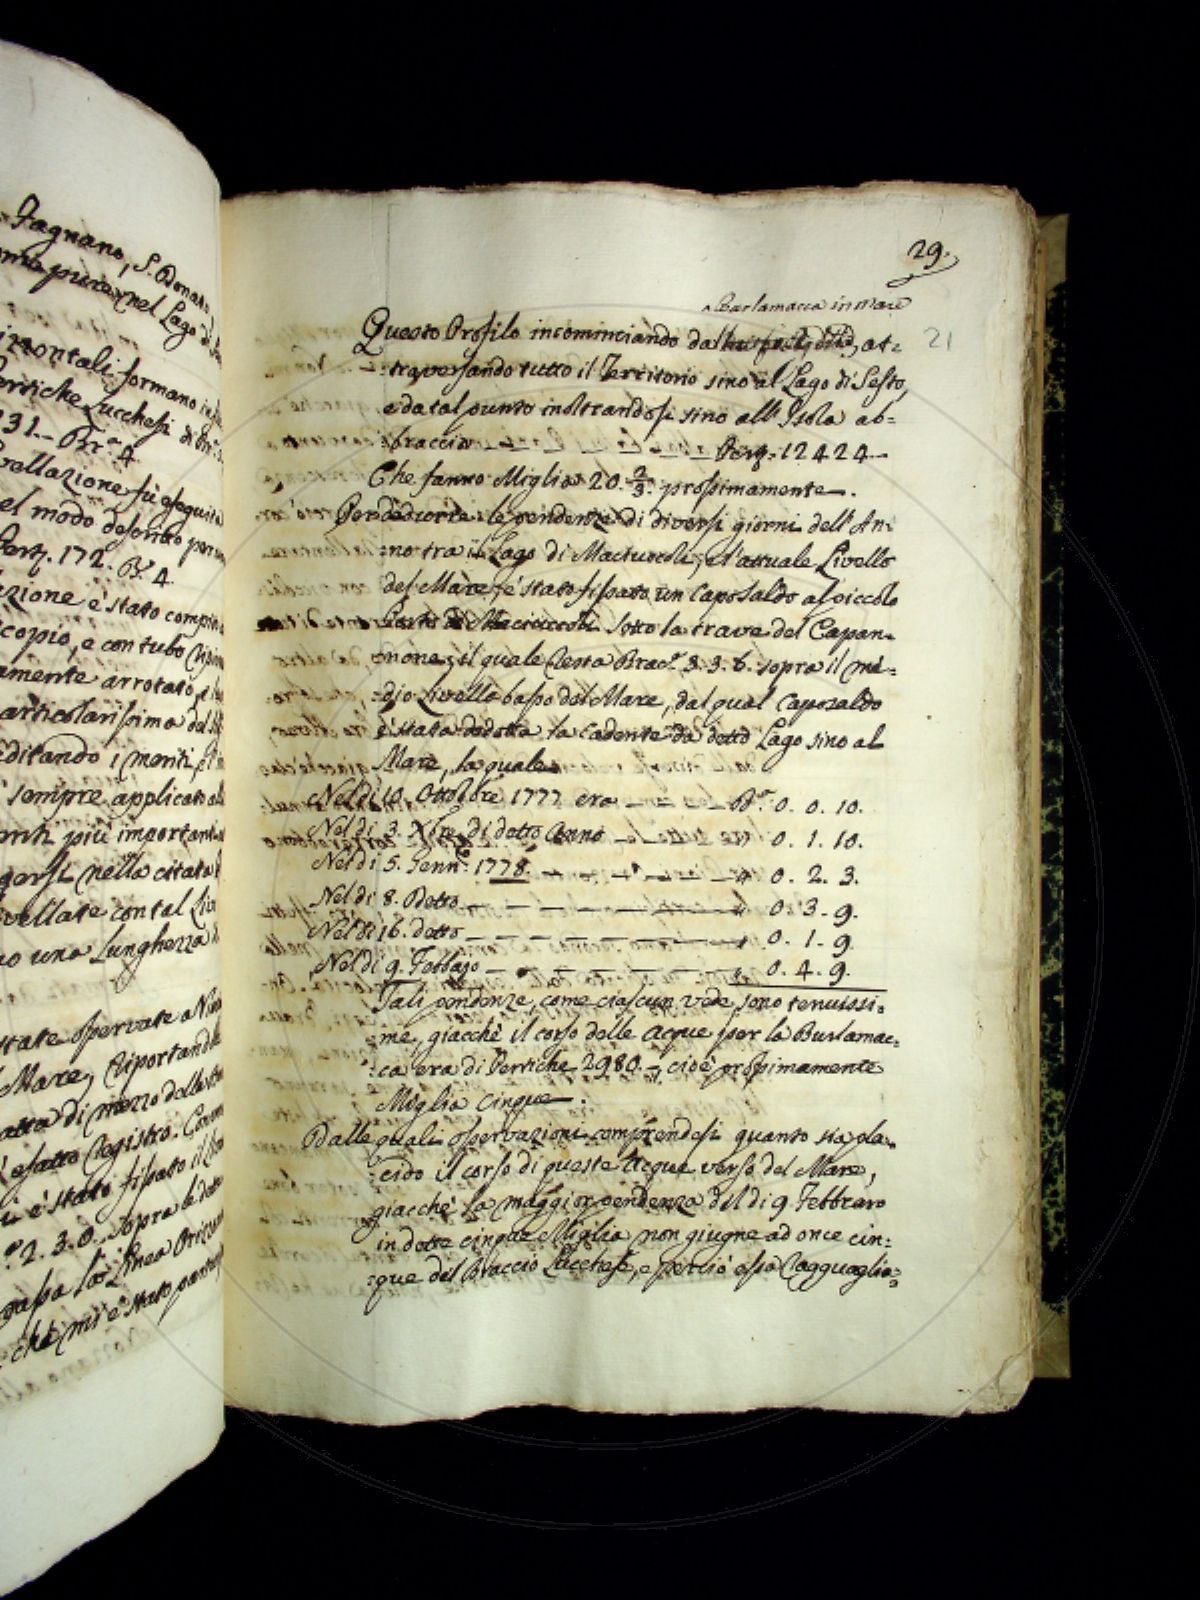 Fagnano, S. Donato
pure nel Lago di
formano
Pertiche Lucchesi di Br.ᵃ
31.- Br.ᵃ 4.
fù eseguita
el modo descritto per
Pertz. 172. Bᵃ 4.
è stato
copio, e con tubo
amente arrotato,
articolarissima del
editando i monti,
sempre applicato al
più important
nella citata
vellate con tal Liv
una Lunghezza di
state osservate a
Mare, riportand
di mezzo della
esatto registro. Com
è stato fissato il
2. 3. 0. sopra
la Linea Orizon
chè mi è stato
29.
Burlamacca in mare
21
Questo Profilo incominciando dalla at=
=traversando tutto il Territorio sino al Lago di Sesto,
e da tal punto inoltrandosi sino all' Isola ab=
=braccia Pertz. 12424-
Che fanno Miglia 20. 2/3. prossimamente.
Per dedurre le pendenze di diversi giorni dell' An=
=no tra il Lago di Maciuccoli, e l'attuale Livello
del Mare è stato fissato un Caposaldo al piccolo
Porto di Maciuccoli sotto la trave del Capan=
=none, il quale resta Brac.ᵃ 3. 3. 6. sopra il me=
=dio Livello basso del Mare, dal qual Caposaldo
è stata dedotta la Cadente da detto Lago sino al
Mare, la quale
Nel dì 10. Ottobre 1777 era - - - Bᵃ 0. 0. 10.
Nel dì 3. Xbre di detto Anno - - - 0. 1. 10.
Nel dì 5. Genn.º 1778. - - - 0. 2. 3.
Nel dì 8. Detto - - - 0. 3. 9.
Nel dì 16. detto - - - 0. 1. 9.
Nel dì 9. Febbajo - - - 0. 4. 9.
Tali pendenze, come ciascun vede, sono tenuissi=
=me, giacchè il corso delle Acque per la Burlamac=
=ca era di Pertiche 2980.-, cioè prossimamente
Miglia Cinque.
Dalle quali osservazioni comprendesi quanto sia pla=
=cido il corso di queste Acque verso del Mare,
giacchè la maggior pendenza del dì 9 Febbraro
in dette cinque Miglia non giugne ad once cin=
=que del Braccio Lucchese, e perciò essa ragguaglia=